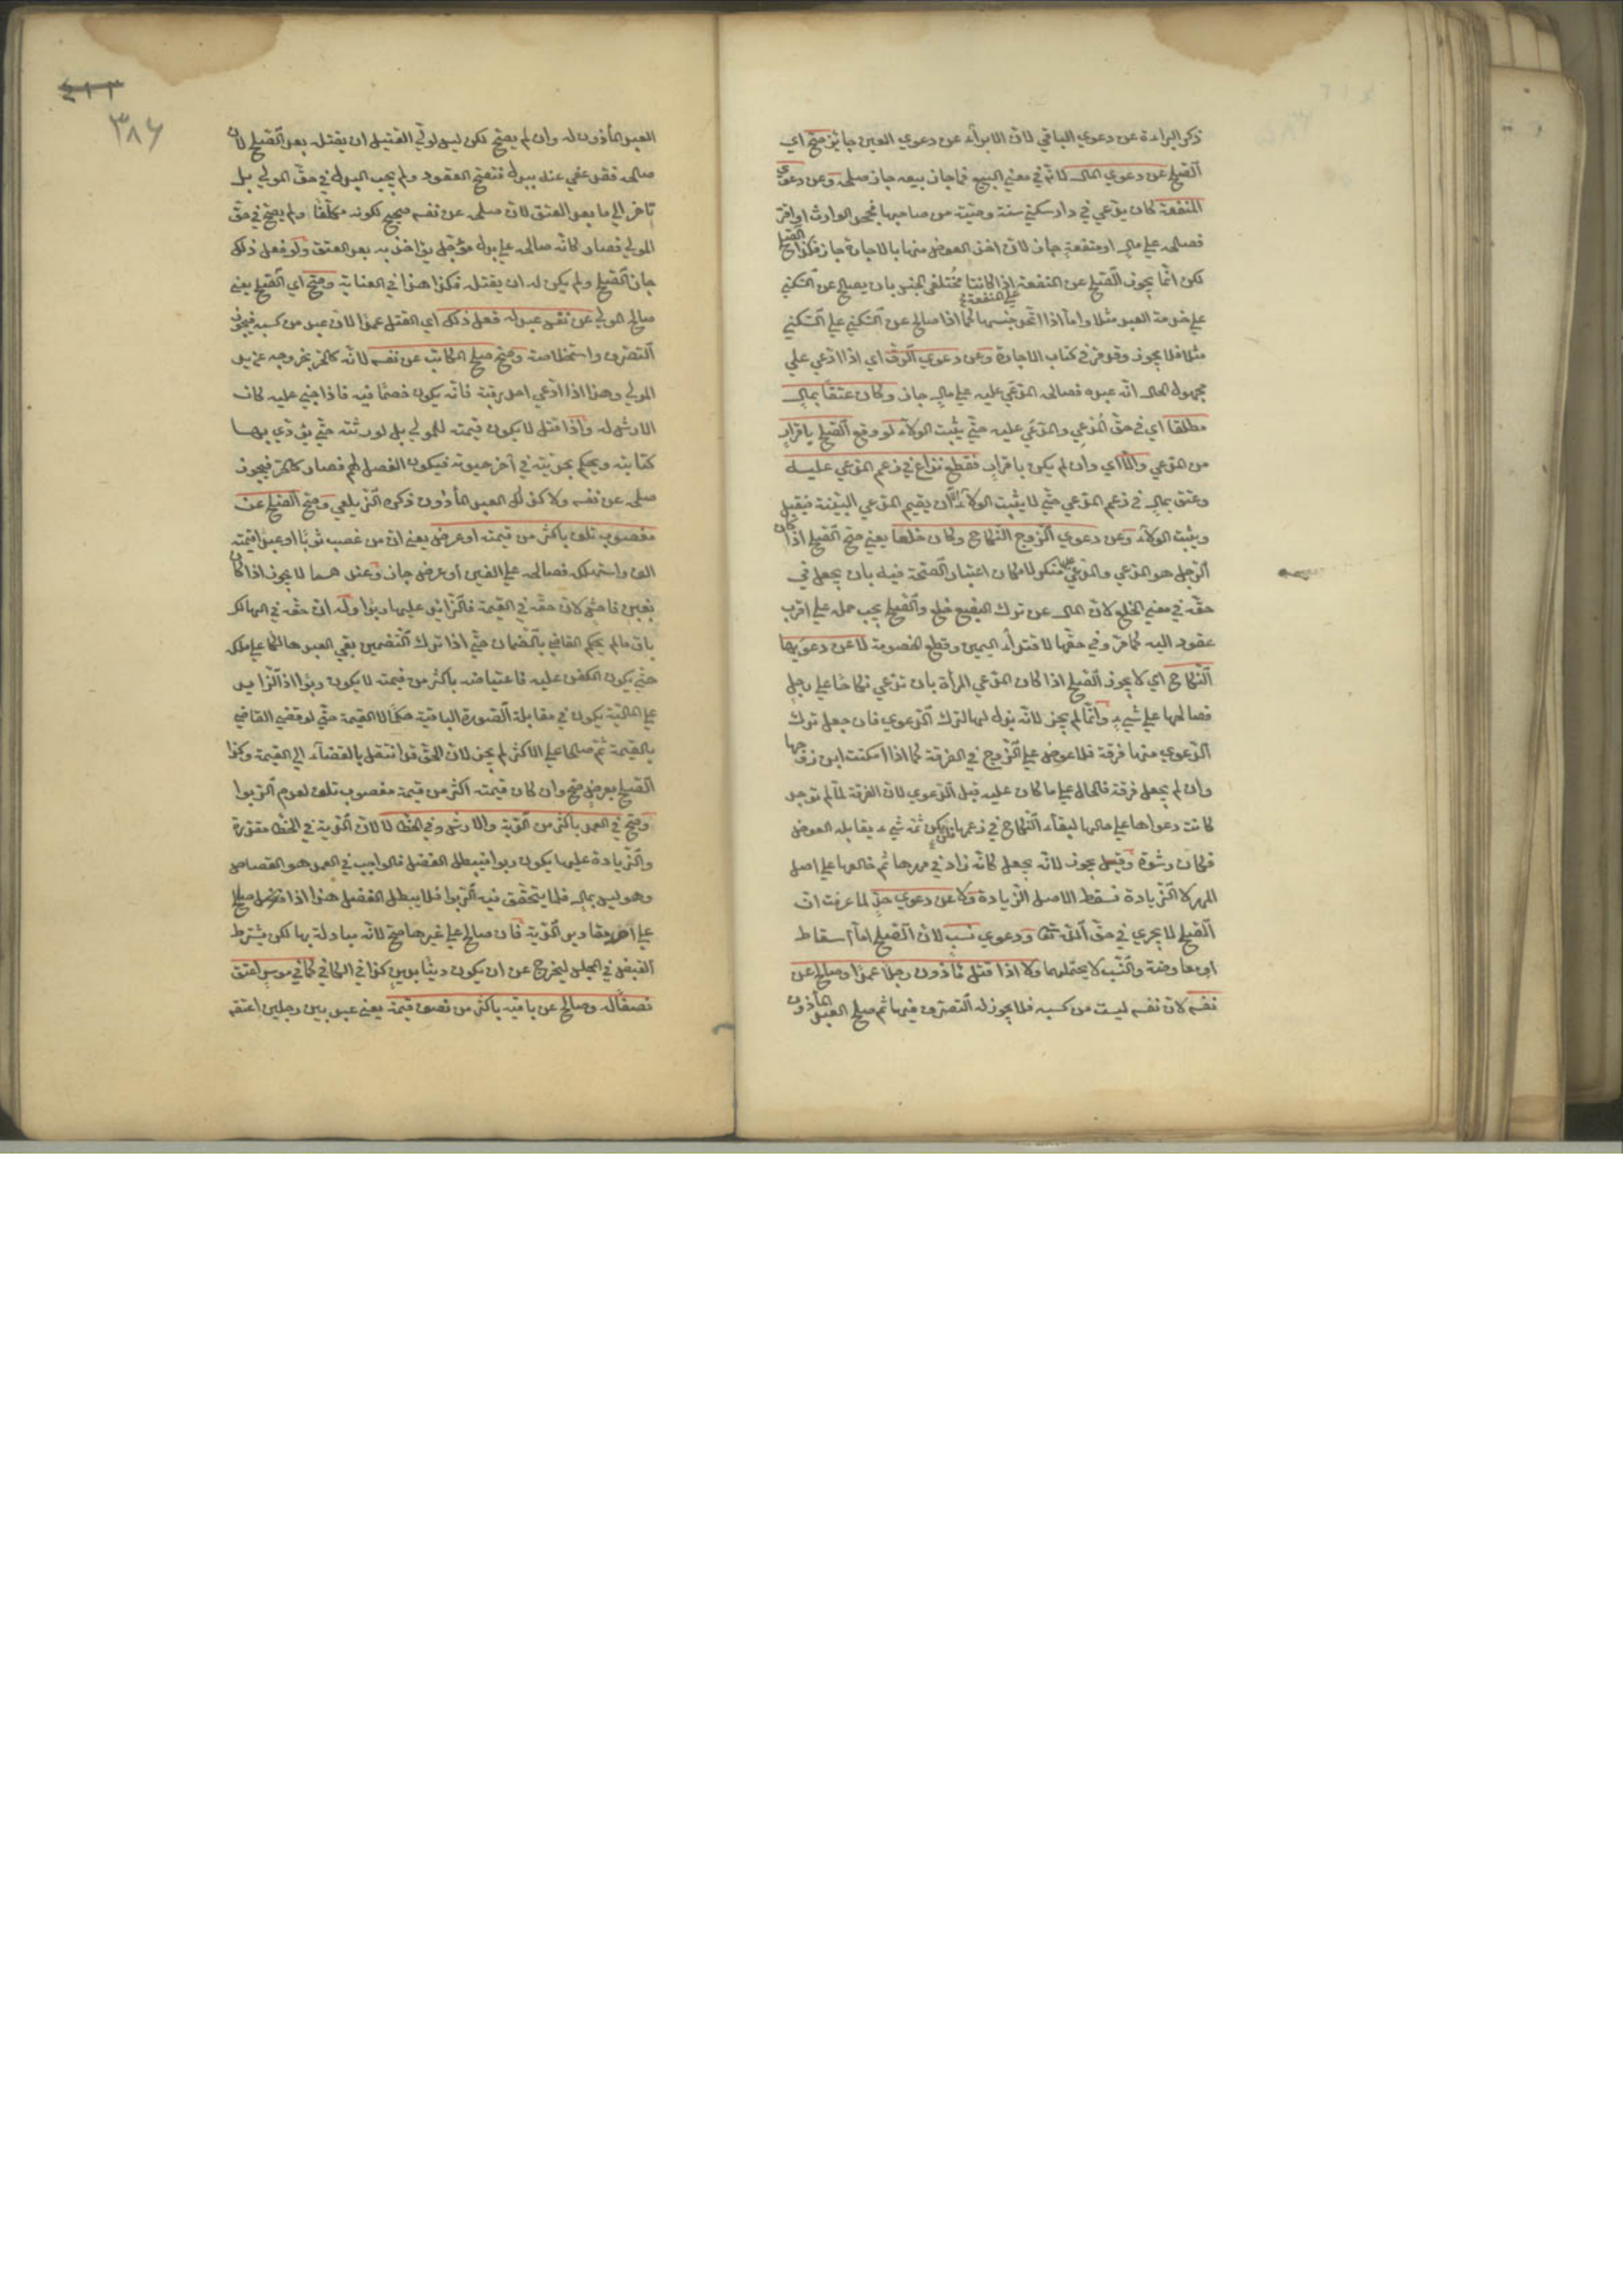 ذكر البراءة عن دعوي الباقي لان الابراء عن دعوي العين جائز صح اي
الصلح عن دعوي المال لانه في معني البيع فما جاز بيعه جاز صلحه وعن دعوي
المنفعة كان يدعي في دار سكني سنة وصية من صاحبها فجحد الوارث او اقر
فصالحه علي مال او منفعة جاز لان اخذ العوض منها بالاجارة جاز فكذا الصلح
لكن انما يجوز الصلح عن المنفعة علي المنفعة اذا كانتا مختلفي الجنس بان يصالح عن السكني
علي خدمة العبد مثلا واما اذا اتحد جنسهما كما اذا صالح عن السكني علي السكني
مثلا فلا يجوز وقد مر في كتاب الاجارة وعن دعوي الرق اي اذا ادعي علي
مجهول الحال انه عبده فصالحه المدعي عليه علي مال جاز وكان عتقا بمال
مطلقا اي في حق المدعي والمدعي عليه حتي يثبت الولاء لو وقع الصلح باقرار
من المدعي والا اي وان لم يكن باقرار فقطع نزاع في زعم المدعي عليه
وعتق بمال في زعم المدعي حتي لا يثبت الولاء الا ان يقيم المدعي البينة فيقبل
ويثبت الولاء وعن دعوي الزوج النكاح وكان خلعا يعني صح الصلح اذا كان
الرجل هو المدعي والمدعي عليه منكر لامكان اعتبار الصحة فيه بان يجعل في
حقه في معني الخلع لان المال عن ترك البضع خلع والصلح يجب حمله علي اقرب
عقود اليه كما مر وفي حقها لافتداء اليمين وقطع الخصومة لا عن دعويها
النكاح اي لا يجوز الصلح اذا كان المدعي المرأة بان تدعي نكاحا علي رجل
فصالحها علي شيء وانما لم يجز لانه بذل لها لترك الدعوي فان جعل ترك
الدعوي منها فرقة فلا عوض علي الزوج في الفرقة كما اذا امكنت ابن زوجها
وان لم يجعل فرقة فالحال علي ما كان عليه قبل الدعوي لان الفرقة لما لم توجد
كانت دعواها علي حالها لبقاء النكاح في زعمها فلم يكن ثمة شيء يقابله العوض
فكان رشوة وقيل يجوز لانه يجعل كانه زاد في مهرها ثم خالعها علي اصل
المهر لا الزيادة فسقط الاصل الزيادة ولا عن دعوي حد لما عرفت ان
الصلح لا يجري في حق الله تعالى ودعوي نسب لان الصلح اما اسقاط
او معاوضة والنسب لا يحتملهما ولا اذا قتل مأذون رجلا عمدا وصلح عن
نفسه لان نفسه ليست من كسبه فلا يجوز له التصرف فيها ثم صلح العبد المأذون
٤١٣
٣٨٦
العبد المأذون له وان لم يصح لكن ليس لولي القتيل ان يقتله بعد الصلح لان
صالحه فقد عفي عنه ببدل فتصح العقود ولم يجب البدل في حق المولي بل
تاخر الي ما بعد العتق لان صلحه عن نفسه صحيح لكونه مكلفا ولم يصح في حق
المولي فصار كانه صالحه علي بدل مؤجل يؤاخذ به بعد العتق ولو فعل ذلك
جاز الصلح ولم يكن له ان يقتله فكذا هذا في العناية وصح اي الصلح يعني
صالح المولي عن نفس عبد له فعل ذلك اي القتل عمدا لان عبده من كسبه فيجوز
التصرف واستخلاصه وصح صلح المكاتب عن نفسه لانه كالحر بخروجه عن يد
المولي وهذا اذا ادعي احد رقبته فانه يكون خصما فيه فاذا جني عليه كان
الارش له واذا قتل لا يكون قيمته للمولي بل لورثته حتي يؤدي بها
كتابته ويحكم بحريته في آخر حيوته فيكون الفضل لهم فصار كالحر فيجوز
صلحه عن نفسه ولا كذلك العبد المأذون ذكره الزيلعي وصح الصلح عن
مغصوب تلف باكثر من قيمته او عرض يعني ان من غصب ثوبا او عبدا قيمته
الف واستهلكه فصالحه علي الفين او عرض جاز وعندهما لا يجوز اذا كان
بغبن فاحش لان حقه في القيمة فالزائد عليها ربوا وله ان حقه في الهالك
باق ما لم يحكم القاضي بالضمان حتي اذا ترك التضمين بقي العبد هالكا علي ملكه
حتي يكون الكفن عليه فاعتياضه باكثر من قيمته لا يكون ربوا اذ الزايد
علي المالية يكون في مقابلة الصورة الباقية حكما لا القيمة حتي لو قضي القاضي
بالقيمة ثم صالحا علي الاكثر لم يجز لان الحق قد انتقل بالقضاء الي القيمة وكذا
الصلح بعرض صح وان كان قيمته اكثر من قيمة مغصوب تلف لعدم الربوا
وصح في العمد باكثر من الدية والارش وفي الخطأ لا لان الدية في الخطأ مقدرة
والزيادة عليها يكون ربوا فيبطل الفضل فالواجب في العمد هو القصاص
وهو ليس بمال فلا يتحقق فيه الربوا فلا يبطل الفضل هذا اذا صلح
علي احد مقادير الدية فان صالح علي غيرها صح لانه مبادلة بها لكن يشترط
القبض في المجلس ليخرج عن ان يكون دينا بدين كذا في الكافي كما في موسر اعتق
نصفا له وصالح عن باقيه باكثر من نصف قيمته يعني عبد بين رجلين اعتقه